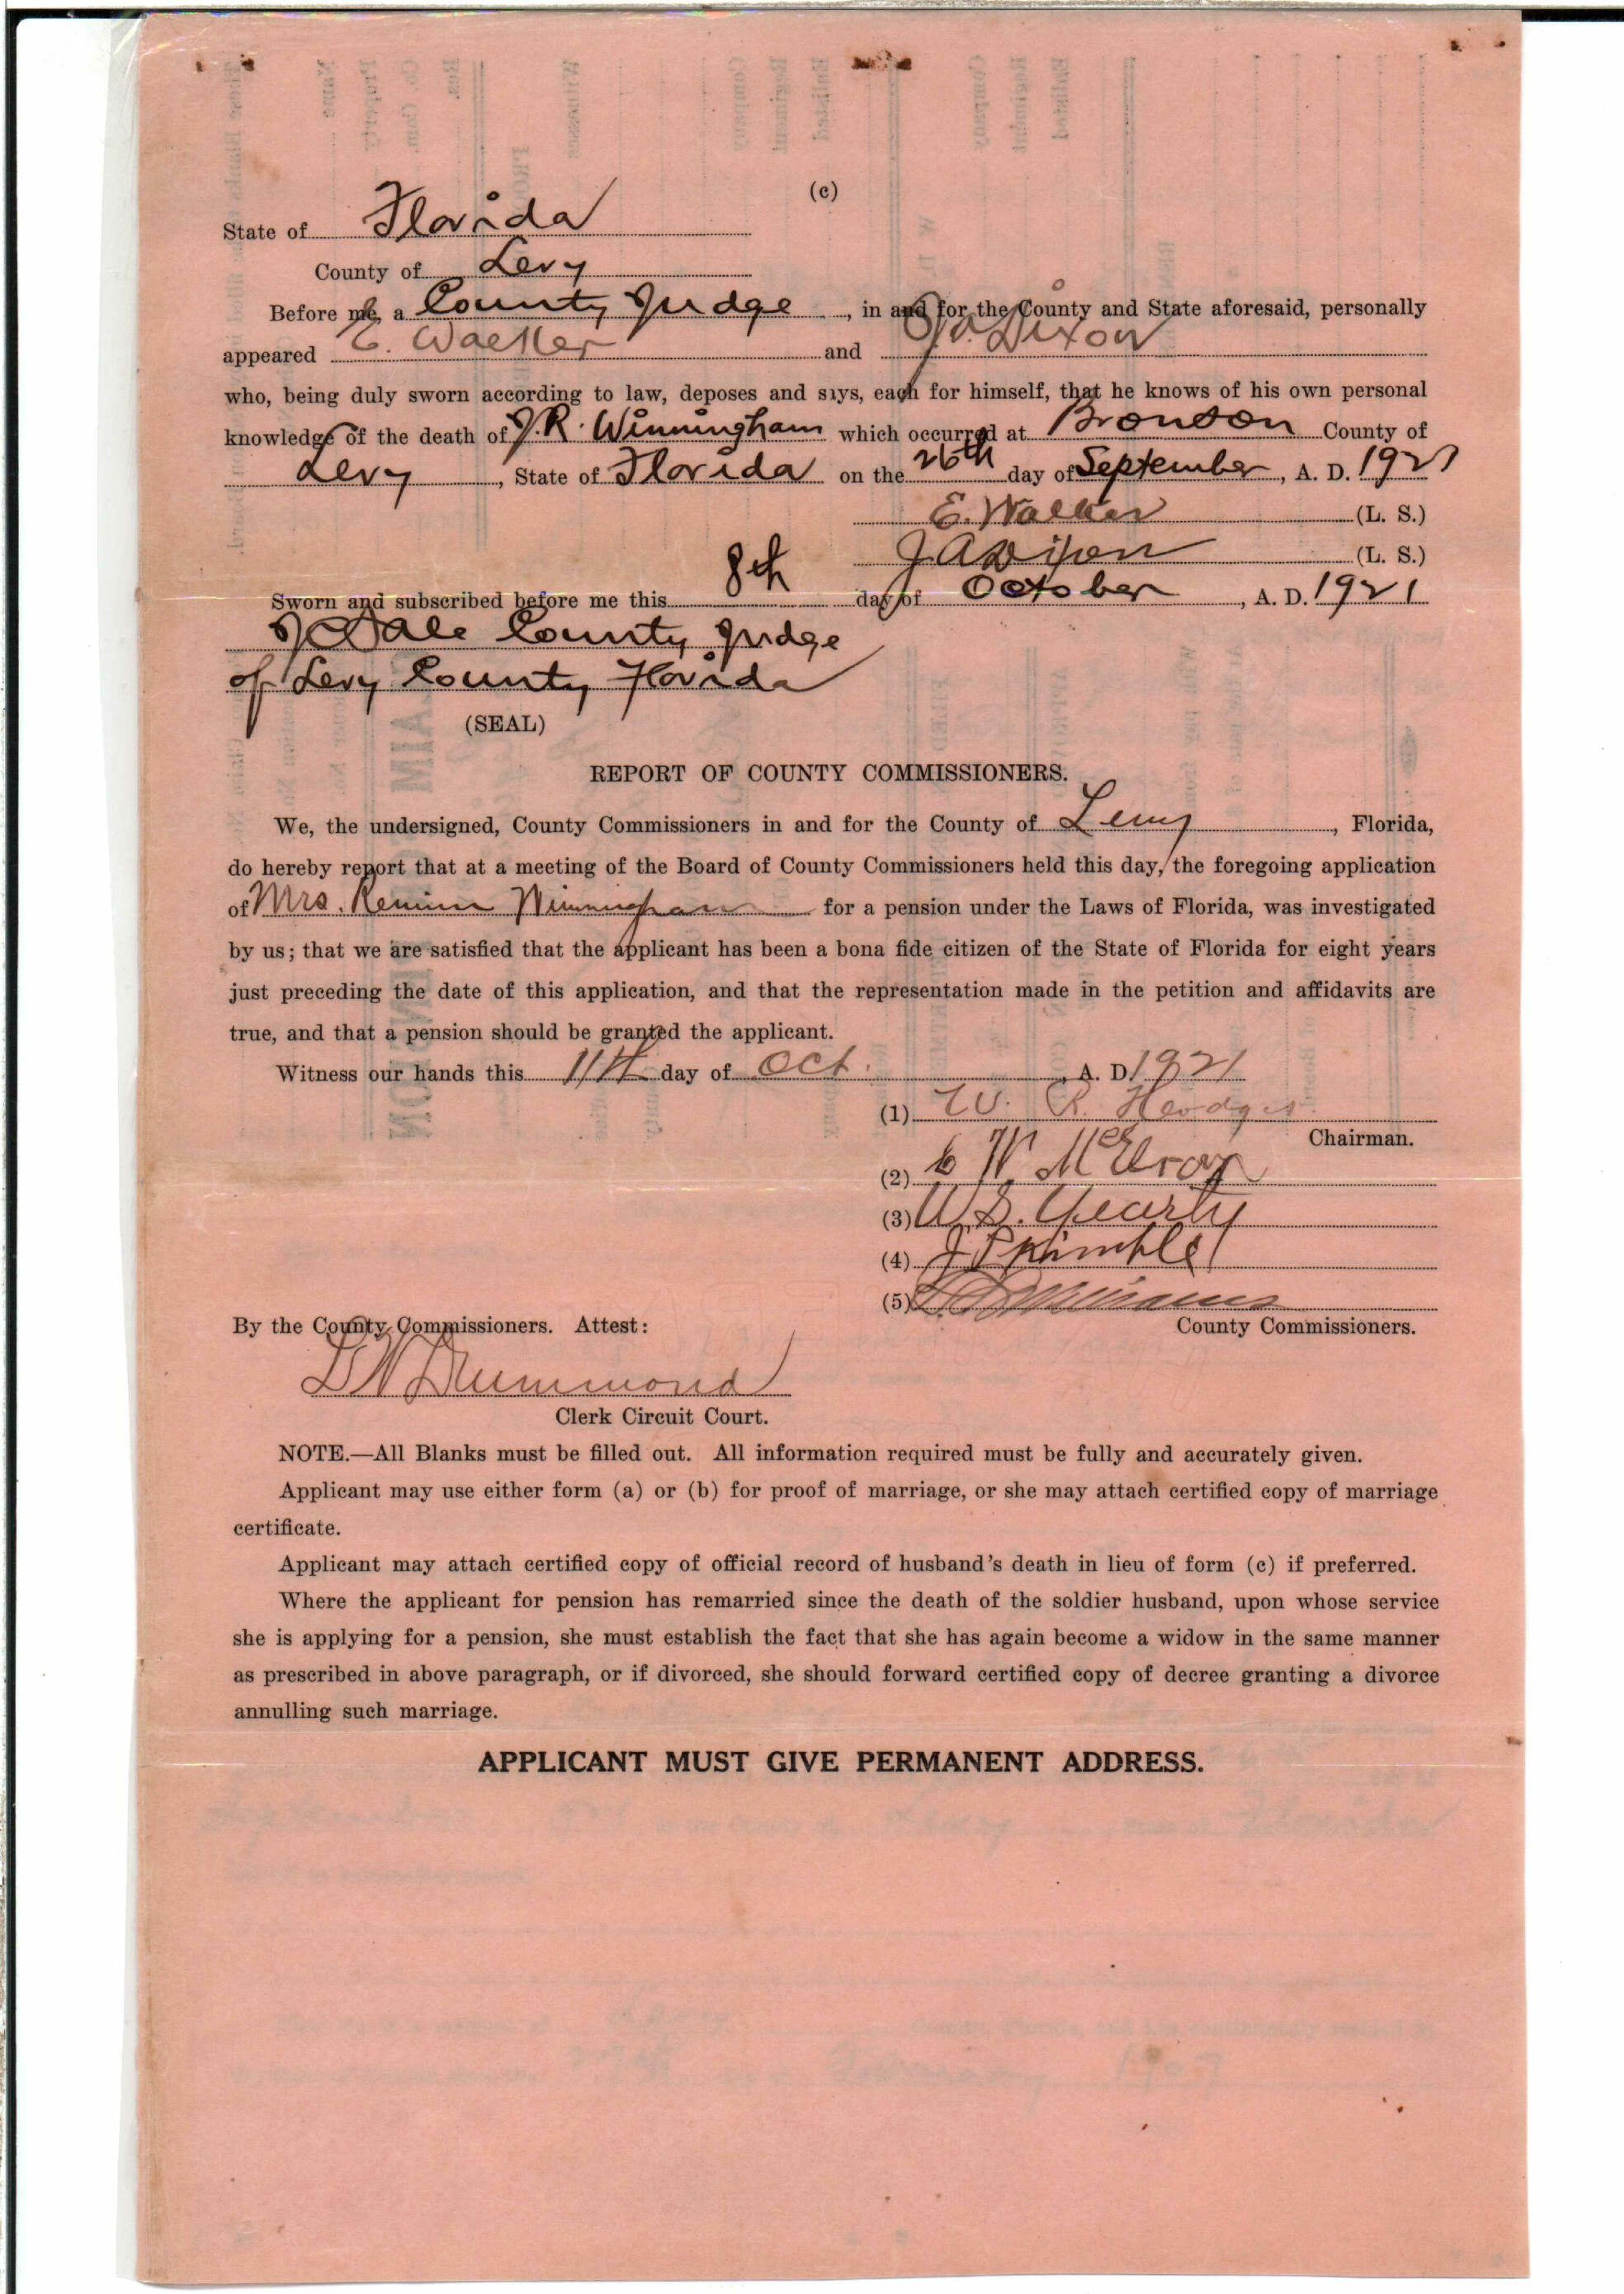 (c)
State of Florida
County of Levy
Before me, a County Judge, in and for the County and State aforesaid, personally
appeared E. Walker and J. A. Dixon
who, being duly sworn according to law, deposes and says, each for himself, that he knows of his own personal
knowledge of the death of J. R. Winningham which occurred at Bronson County of
Levy, State of Florida on the 26th day of September, A. D. 1921
E. Walker (L. S.)
J A Dixon (L. S.)
Sworn and subscribed before me this 8th day of October, A. D. 1921
Dale County Judge
of Levy County Florida
(SEAL)
REPORT OF COUNTY COMMISSIONERS.
We, the undersigned, County Commissioners in and for the County of Levy, Florida,
do hereby report that at a meeting of the Board of County Commissioners held this day, the foregoing application
of Mrs. Winningham for a pension under the Laws of Florida, was investigated
by us; that we are satisfied that the applicant has been a bona fide citizen of the State of Florida for eight years
just preceding the date of this application, and that the representation made in the petition and affidavits are
true, and that a pension should be granted the applicant.
Witness our hands this 11th day of Oct. A. D. 1921
(1) W. R. Hodges
Chairman.
(2) W. McElroy
(3) W. S. Yearty
(4) J P Kimble
(5) Williams
By the County Commissioners. Attest:
County Commissioners.
L W Drummond
Clerk Circuit Court.
NOTE.—All Blanks must be filled out. All information required must be fully and accurately given.
Applicant may use either form (a) or (b) for proof of marriage, or she may attach certified copy of marriage
certificate.
Applicant may attach certified copy of official record of husband's death in lieu of form (c) if preferred.
Where the applicant for pension has remarried since the death of the soldier husband, upon whose service
she is applying for a pension, she must establish the fact that she has again become a widow in the same manner
as prescribed in above paragraph, or if divorced, she should forward certified copy of decree granting a divorce
annulling such marriage.
APPLICANT MUST GIVE PERMANENT ADDRESS.